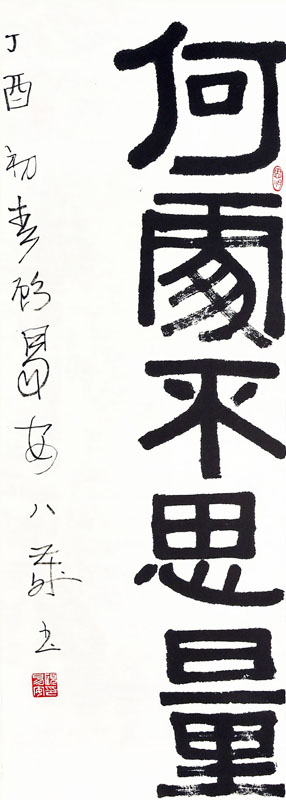 何處不思量
丁酉初春顾易安八歲书